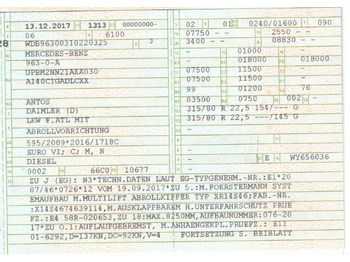 13.12.2017 1313 00000000-
06 6100
WDB96300310220325 3
MERCEDES-BENZ
963-0-A
UPBM2NN21AXA030
A140C1GADLCXX
ANTOS
DAIMLER (D)
LKW F.ATL MIT
ABROLLVORRICHTUNG
595/2009*2016/1718C
EURO VI; C; M, N
DIESEL
0002 66C0 10677
02 01 0240/01600 090
07750 -- 2550 --
3400 -- 08830 --
- 01000 -
- 018000 018000
07500 11500 -
07500 11500 -
99 01200 76
03500 0750 002 -
315/80 R 22,5 154/--- G
315/80 R 22,5 ---/145 G
- -
E WY656036
ZU J (EG): N3*TECHN.DATEN LAUT EG-TYPGENEHM.-NR.:E1*20
07/46*0726*12 VOM 19.09.2017*ZU 5.:M.FOERSTERMANN SYST
EMAUFBAU M.MULTILIFT ABROLLKIPPER TYP XR14S46;FAB.-NR.
:X14S4674639114,M.AUSKLAPPBAREM H.UNTERFAHRSCHUTZ PRUE
FZ.:E4 58R-020653,ZU 18:MAX.8250MM,AUFBAUNUMMER:076-20
17*ZU O.1:AUFLAUFGEBREMST, M.ANHAENGEKPL.PRUEFZ.: B11
01-6292,D=137KN,DC=92KN,V=4 FORTSETZUNG S. BEIBLATT